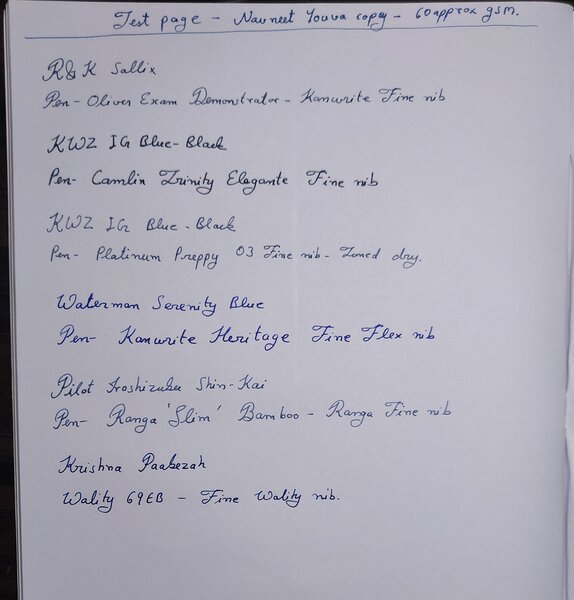 Test page - Navneet Youva copy - 60 approx gsm.
R&K Salix
Pen- Oliver Exam Demonstrator - Kanwrite Fine nib
KWZ IG Blue-Black
Pen- Camlin Trinity Elegante Fine nib
KWZ IG Blue-Black
Pen- Platinum Preppy 03 Fine nib - Tuned dry.
Waterman Serenity Blue
Pen- Kanwrite Heritage Fine Flex nib
Pilot Iroshizuku Shin-Kai
Pen- Ranga 'Slim' Bamboo - Ranga Fine nib
Krishna Paakezah
Wality 69EB - Fine Wality nib.